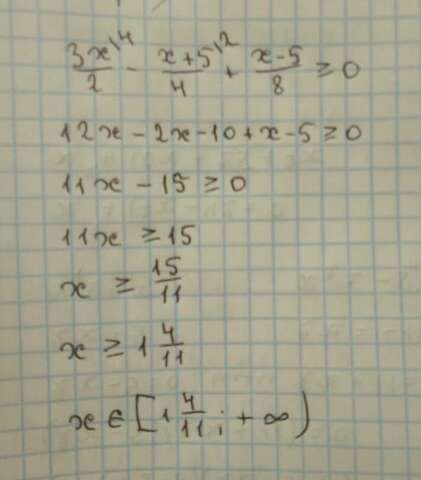 3x\4/2 - x+5\2/4 + x-5/8 ≥ 0
12x - 2x - 10 + x - 5 ≥ 0
11x - 15 ≥ 0
11x ≥ 15
x ≥ 15/11
x ≥ 1 4/11
x ∈ [1 4/11; + ∞)